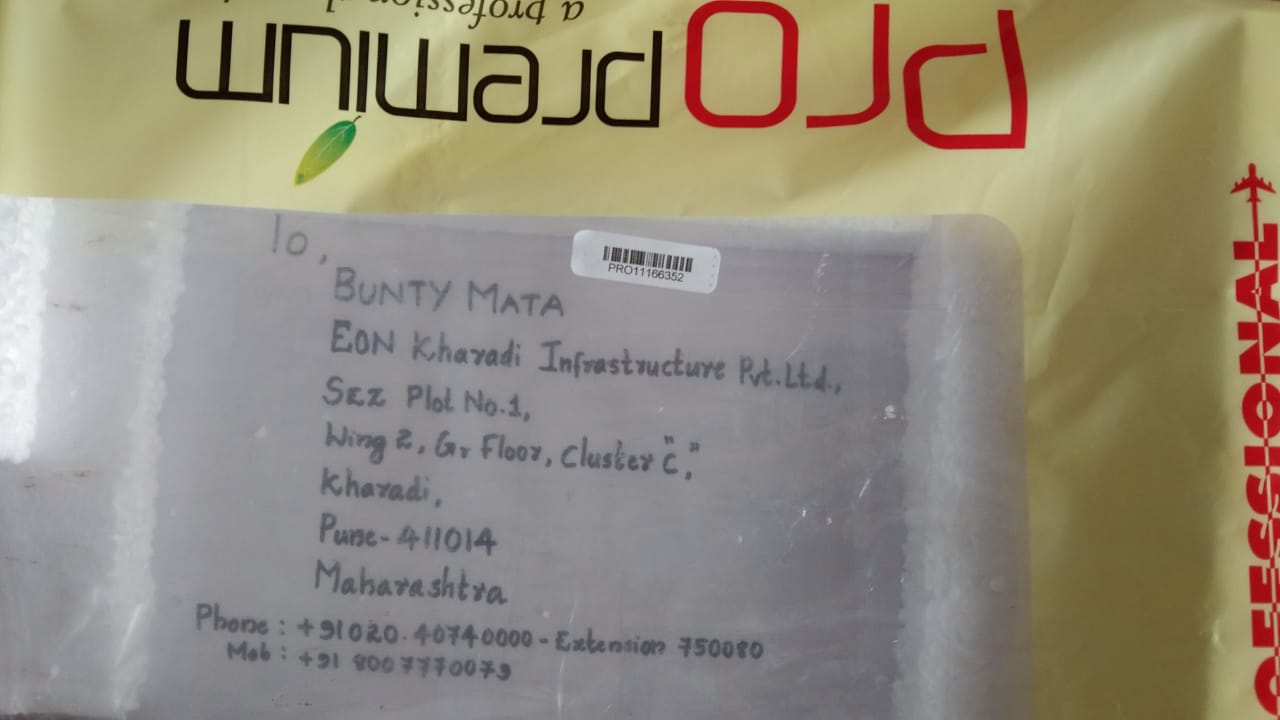 PRO premium
a professional
PRO11166352
To,
BUNTY MATA
EON Kharadi Infrastructure Pvt.Ltd.,
SEZ Plot No.1,
Wing 2, Gr Floor, Cluster "C",
Kharadi,
Pune-411014
Maharashtra
Phone : +91 020.40740000 - Extension 750080
Mob : +91 8007770079
OFESSIONAL